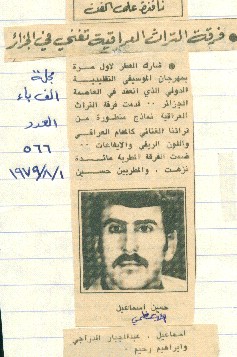 نافذة على الفن
فرقة التراث العراقية تغني في الجزائر
شارك القطر لاول مرة
بمهرجان الموسيقى التقليدية
الدولي الذي انعقد في العاصمة
الجزائر .. قدمت فرقة التراث
العراقية نماذج متطورة من
تراثنا الغنائي كالمقام العراقي
واللون الريفي والايقاعات ..
ضمت الفرقة المطربة مائدة
نزهت ، والمطربين حسين
مجلة
الف باء
العدد
٥٦٦
١٩٧٩/٨/١
حسين اسماعيل
الاعظمي
اسماعيل ، عبدالجبار الدراجي
وابراهيم رحيم .